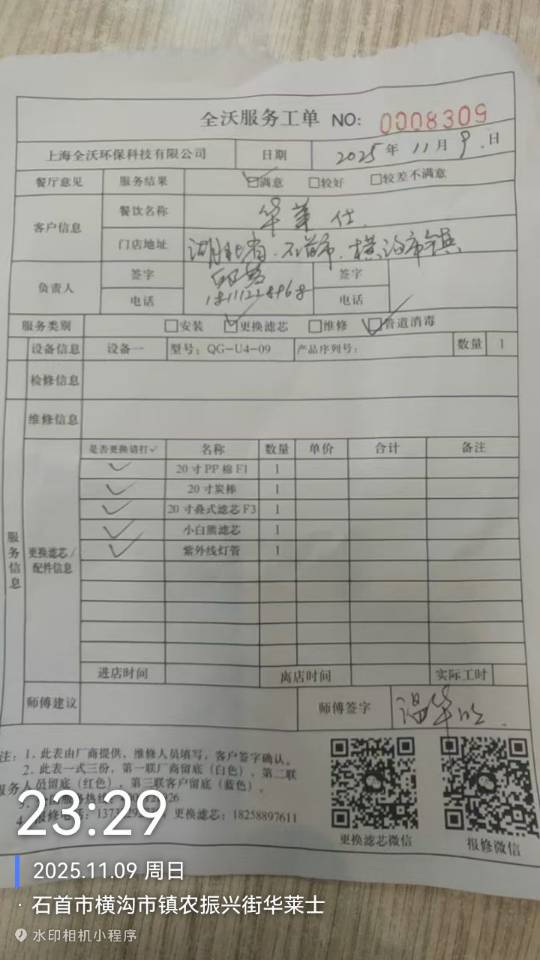 全沃服务工单 NO: 0008309
上海全沃环保科技有限公司 日期 2025年11月9日
餐厅意见 服务结果 ☑满意 □较好 □较差不满意
客户信息 餐饮名称 华莱仕
门店地址 湖北省.石首市.横沟市镇
负责人 签字 签字
电话 电话
服务类别 □安装 ☑更换滤芯 □维修 ☑管道消毒
设备信息 设备一 型号: QG-U4-09 产品序列号: 数量 1
检修信息
维修信息
服务信息
更换滤芯/配件信息
是否更换请打✓ 名称 数量 单价 合计 备注
✓ 20寸PP棉F1 1
✓ 20寸炭棒 1
✓ 20寸叠式滤芯F3 1
✓ 小白熊滤芯 1
✓ 紫外线灯管 1
进店时间 离店时间 实际工时
师傅建议 师傅签字
注: 1、此表由厂商提供、维修人员填写，客户签字确认。
2、此表一式三份，第一联厂商留底（白色）、第二联
服务人员留底（红色）、第三联客户留底（蓝色）。
更换滤芯: 18258897611
更换滤芯微信 报修微信
23:29
2025.11.09 周日
石首市横沟市镇农振兴街华莱士
水印相机小程序